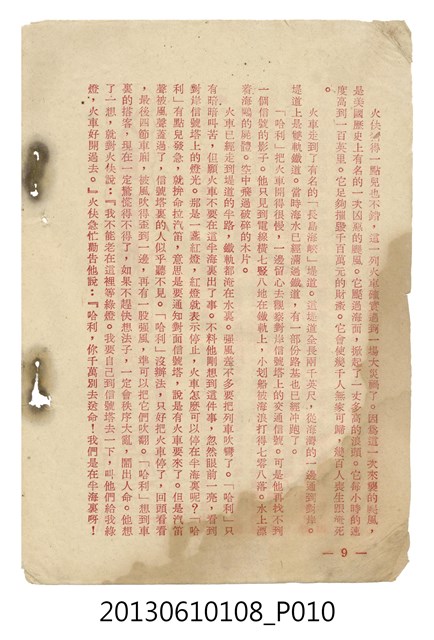 火伕猜得一點兒也不錯，這一列火車確實遇到一場大災禍了。因爲這一次來襲的颶風，
是美國歷史上有名的一次凶惡的颶風。它颳過海面，掀起了一丈多高的浪頭。它每小時的速
度高到一百英里。它足夠摧毀千百萬元的財產。它會使幾千人無家可歸，幾百人喪生跟淹死
。
火車走到了有名的「長島海峽」堤道。這堤道全長兩千英尺，從海灣的一邊通到對岸。
堤道上是雙軌鐵道。當時海水已經漏過鐵道，有一部份路基也已經冲跑了。
「哈利」把火車開得很慢，一邊留心去觀察對岸信號塔上的交通信號。可是他再找不到
一個信號的影子。他只見到電線橫七豎八地在鐵軌上，小划船被海浪打得七零八落。水上漂
着海鷗的屍體。空中飛過破碎的木片。
火車已經走到堤道的半路，鐵軌都淹在水裏。强風差不多要把列車吹彎了。「哈利」只
有暗暗叫苦，但願火車不要在這半海裏出了事。不料他剛想到這件事，忽然眼前一亮，看到
對岸信號塔上的燈光。那是一盞紅燈，紅燈就表示停止，火車怎麼可以停在半海裏呢？「哈
利」有點兒發急，就拚命拉汽笛，意思是要通知對面信號塔，說是有火車要來了。但是汽笛
聲被風聲蓋過了，信號塔裏的人似乎聽不見。「哈利」沒辦法，只好把火車停了，回頭看看
，最後四節車廂，被風吹得歪到一邊，再有一股强風，準可以把它們吹翻。「哈利」想到車
裏的搭客，現在一定驚慌得不得了，如果不趕快想法子，一定會秩序大亂，鬧出人命。他想
了一想，就對火伕說：『我不能老在這裡等綠燈。我要自己到信號塔去一下，叫他們給我綠
燈，火車好開過去。』火伕急忙勸告他說：『哈利，你千萬別去送命！我們是在半海裏呀！
— 9 —
20130610108_P010